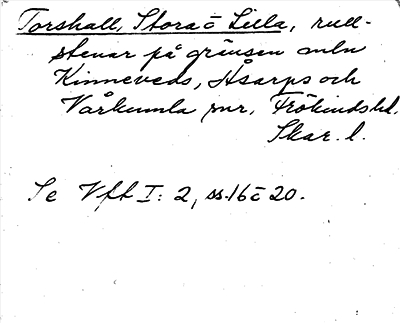 Torshall, Stora o Lilla, rull-
stenar på gränsen mln
Kinneveds, Åsarps och
Vårkumla snr, Frökinds hd.
Skar. l.
Se Vft I: 2, ss. 16 o 20.